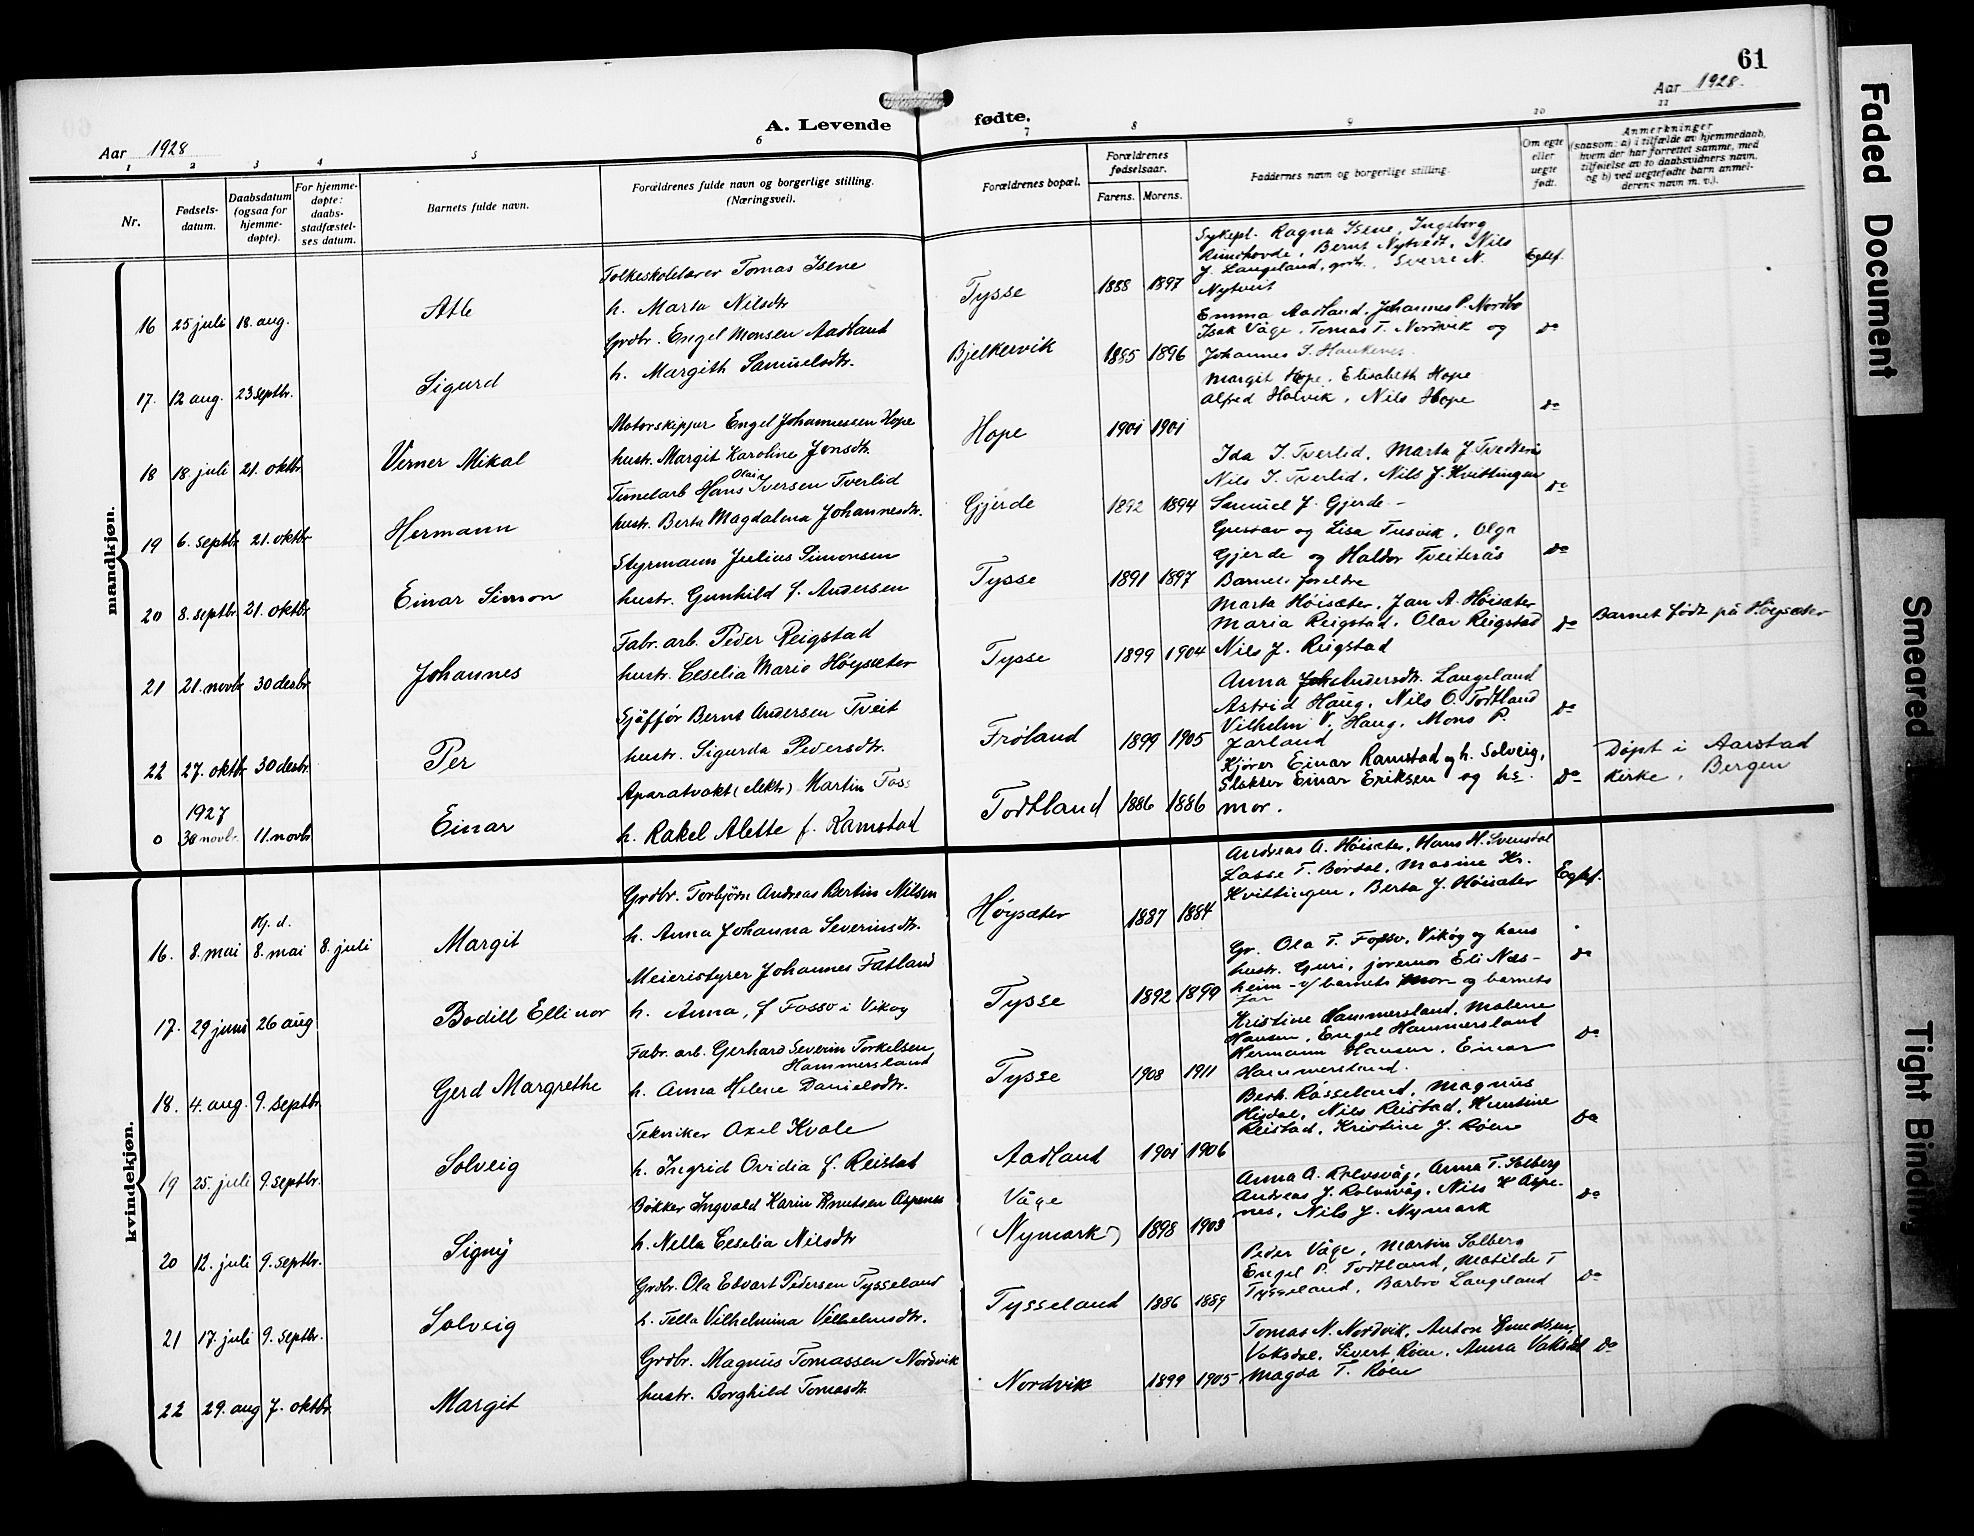 61
Aar 1928
Aar 1928.
A. Levende fødte.
1 2 3 4 5 6 7 8 9 10 11
Nr.
Fødsels-
datum.
Daabsdatum
(ogsaa for
hjemme-
døpte).
For hjemme-
døpte:
daabs-
stadfæstel-
ses datum.
Barnets fulde navn.
Forældrenes fulde navn og borgerlige stilling.
(Næringsvei).
Forældrenes bopæl.
Forældrenes
fødselsaar.
Farens. Morens.
Faddernes navn og borgerlige stilling.
Om egte
eller
uegte
født.
Anmerkninger
(saasom: a) i tilfælde av hjemmedaab,
hvem der har forrettet samme, med
tilføielse av to daabsvidners navn,
og b) ved uegtefødte barn anmel-
derens navn m. v.).
mandkjøn.
16 25 juli 18. aug.
Atle
Folkeskolelærer Tomas Isene
h. Marta Nilsdtr
Tysse
1888 1897
Sykepl. Ragna Isene, Ingeborg
Rundhovde, Bernt Nytvedt, Nils
J. Langeland, grdbr., Sverre N.
Nytveit
Egtef.
17. 12 aug. 23 septbr.
Sigurd
Grdbr. Engel Monsen Aadland
h. Margith Samuelsdtr.
Bjelkervik
1885 1896
Emma Aadland, Johannes P. Nordbø
Isak Våge, Tomas T. Nordvik og
Johannes S. Haukenes.
do
18 18 juli 21. oktbr
Verner Mikal
Motorskipper Engel Johannessen Hope
hustr. Margit Karoline Jonsdtr.
Hope
1901 1901
Margit Hope, Elisabeth Hope
Alfred Holvik, Nils Hope
do
19 6. septbr 21. oktbr
Hermann
Tunelarb Hans Olai Iversen Tverlid
hustr. Berta Magdalena Johannesdtr.
Gjerde
1892 1894
Ida I. Tverlid, Marta J. Tvedterås
Nils I. Tverlid, Nils J. Kvittingen
Samuel J. Gjerde -
do
20 8. septbr 21. oktbr
Einar Simon
Styrmann Julius Simonsen
hustr. Gunhild f. Andersen
Tysse
1891 1897
Gustav og Lisa Tusvik, Olga
Gjerde og Haldor Tveiterås
Barnets foreldre
do
21 21. novbr 30 desbr
Johannes
Fabr. arb. Peder Reigstad
hustr. Cecelia Marie Høysæter
Tysse
1899 1904
Marta Høisæter, Jan A. Høisæter
Maria Reigstad, Olav Reigstad
Nils J. Reigstad
do
Barnet født på Høysæter
22 27. oktbr 30 desbr.
Per
Sjåffør Bernt Andersen Tveit
hustr. Sigurda Pedersdtr.
Frøland
1899 1905
Anna Andersdtr. Langeland
Astrid Haug, Nils O. Todtland
Vilhelm V. Haug, Mons P.
Jarland
do
0 1927 30 novbr. 11. novbr
Einar
Aparatvakt (elektr) Martin Foss
h. Rakel Alette f. Ramstad
Todtland
1886 1886
Kjører Einar Ramstad og h. Solveig,
Slakter Einar Eriksen og hs.
mor.
do
Døpt i Aarstad
kirke, Bergen
kvindekjøn.
16. 8. mai Hj. d. 8. mai 8. juli
Margit
Grdbr. Torbjørn Andreas Bertin Nilsen
h. Anna Johanna Severinsdtr.
Høysæter
1887 1884
Andreas A. Høisæter, Hans H. Svensdal
Lasse T. Børdal, Masine Kr.
Kvittingen, Berta J. Høisæter
Egtef.
17. 29 juni 26 aug
Bodill Ellinor
Meieristyrer Johannes Fatland
h. Anna, f Fosso i Vikøy
Tysse
1892 1899
Gr. Ola T. Fosso, Vikøy og hans
hustr. Guri, jormor Eli Næs-
heim - v/ barnets mor og barnets
far
do
18. 4. aug. 9. septbr
Gerd Margrethe
Fabr. arb. Gerhard Severin Torkelsen
Hammersland
h. Anna Helene Danielsdtr.
Tysse
1908 1911
Kristine Hammersland, Malene
Hansen, Engel Hammersland
Hermann Hansen, Einar
Hammersland.
do
19 25. juli 9. septbr.
Solveig
Tekniker Axel Kvale
h. Ingrid Ovidia f. Reistad
Aadland
1901 1906
Berh. Råsseland, Magnus
Hisdal, Nils Reistad, Huntine
Reistad, Kristine J. Røen
do
20 12. juli 9. septbr.
Signy
Bøkker Ingvald Karin Knutsen Aspenes
h. Nella Ceselia Nilsdtr
Våge
(Nymark)
1898 1903
Anna A. Rolvsvåg, Anna T. Solberg
Andreas J. Rolvsvåg, Nils K Aspe-
nes, Nils J. Nymark
do
21 17. juli 9. septbr.
Solveig
Grdbr. Ola Edvart Pedersen Tysseland
h. Tella Vilhelmina Vilhelmsdtr.
Tysseland
1886 1889
Peder Våge, Martin Solberg
Engel P. Todtland, Matilde T
Tysseland, Barbro Langeland
do
22 29. aug 7. oktbr.
Margit
Grdbr. Magnus Tomassen Nordvik
hustr. Borghild Tomasdtr.
Nordvik
1899 1905
Tomas N. Nordvik, Anton Knudsen,
Vaksdal, Sivert Røen, Anna Vaksdal
Magda T. Røen
do
Faded Document
Smeared
Tight Binding